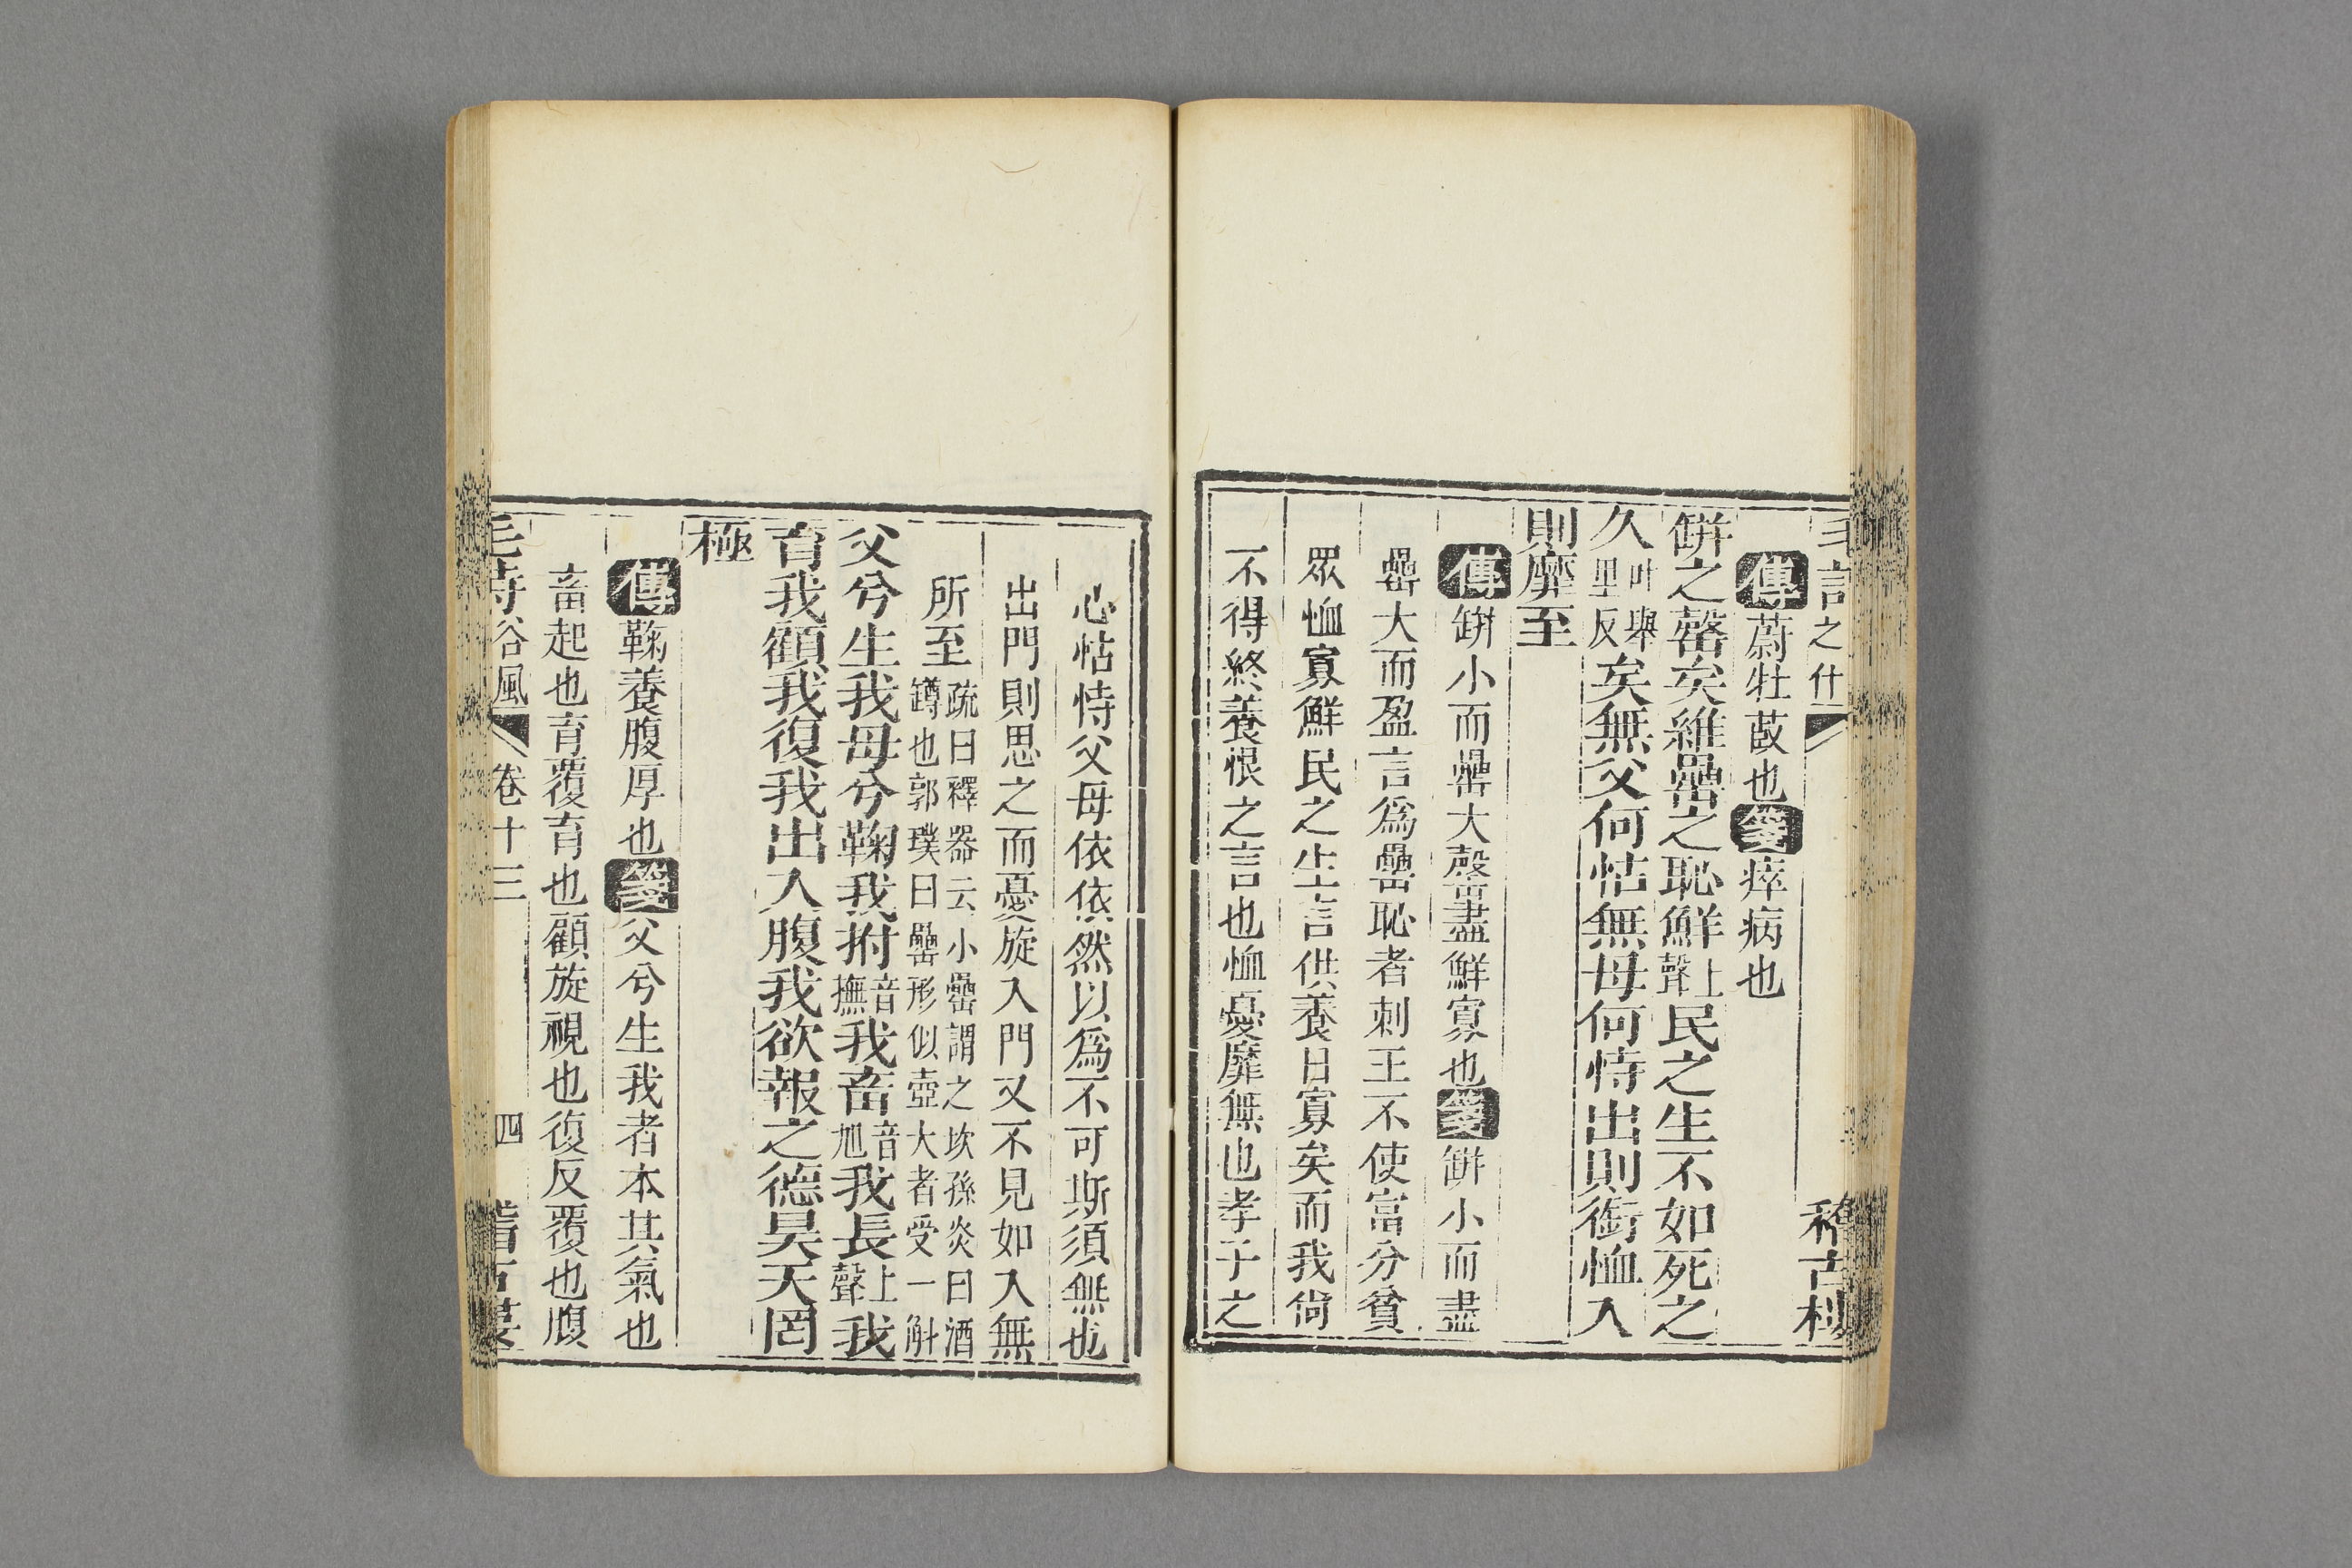 之什
稽古
傳蔚牡菣也箋瘁病也
缾之罄矣維罍之恥鮮上聲民之生不如死之
久叶舉里反矣無父何怙無母何恃出則銜恤入
則靡至
傳缾小而罍大罄盡鮮寡也箋缾小而盡
罍大而盈言爲罍恥者刺王不使富分貧
眾恤寡鮮民之生言供養日寡矣而我尙
不得終養恨之言也恤憂靡無也孝子之
心怙恃父母依依然以爲不可斯須無也
出門則思之而憂旋入門又不見如入無
所至疏曰釋器云小罍謂之坎孫炎曰酒
罇也郭璞曰罍形似壺大者受一斛
父兮生我母兮鞠我拊音撫我畜音旭我長上聲我
育我顧我復我出入腹我欲報之德昊天罔
極
傳鞠養腹厚也箋父兮生我者本其氣也
畜起也育覆育也顧旋視也復反覆也腹
谷風
卷十三
四